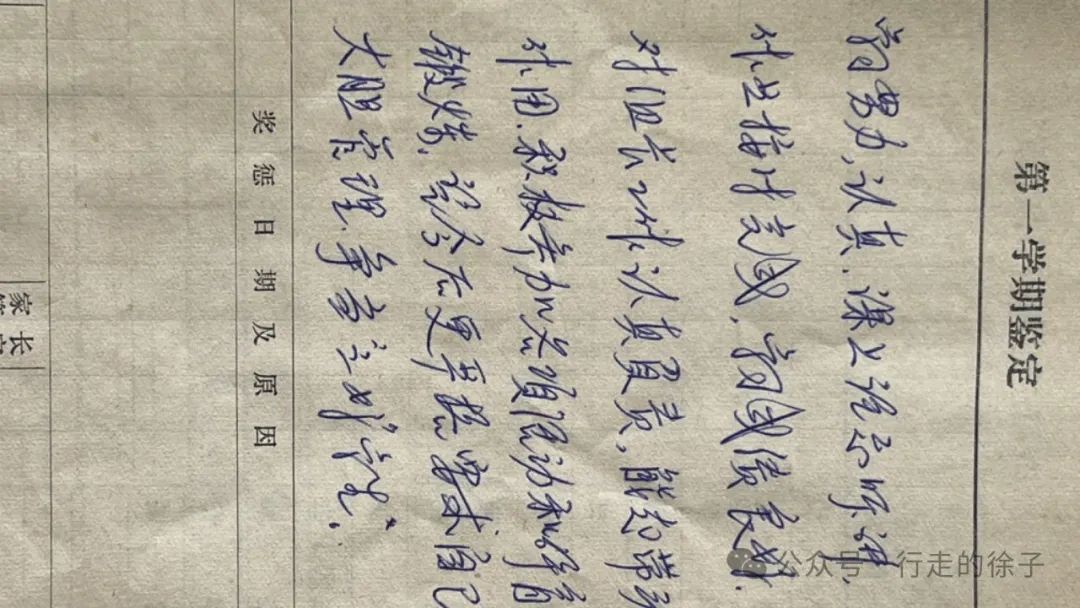 第一学期鉴定
学习努力，认真，课上能不听讲，
作业按时完成，学习成绩良好，
对组长工作认真负责，能起带头
作用，积极参加各项活动和体育
锻炼，
更严格要求自己
大胆管理，争当
奖惩日期及原因
家长
公众号·行走的徐子